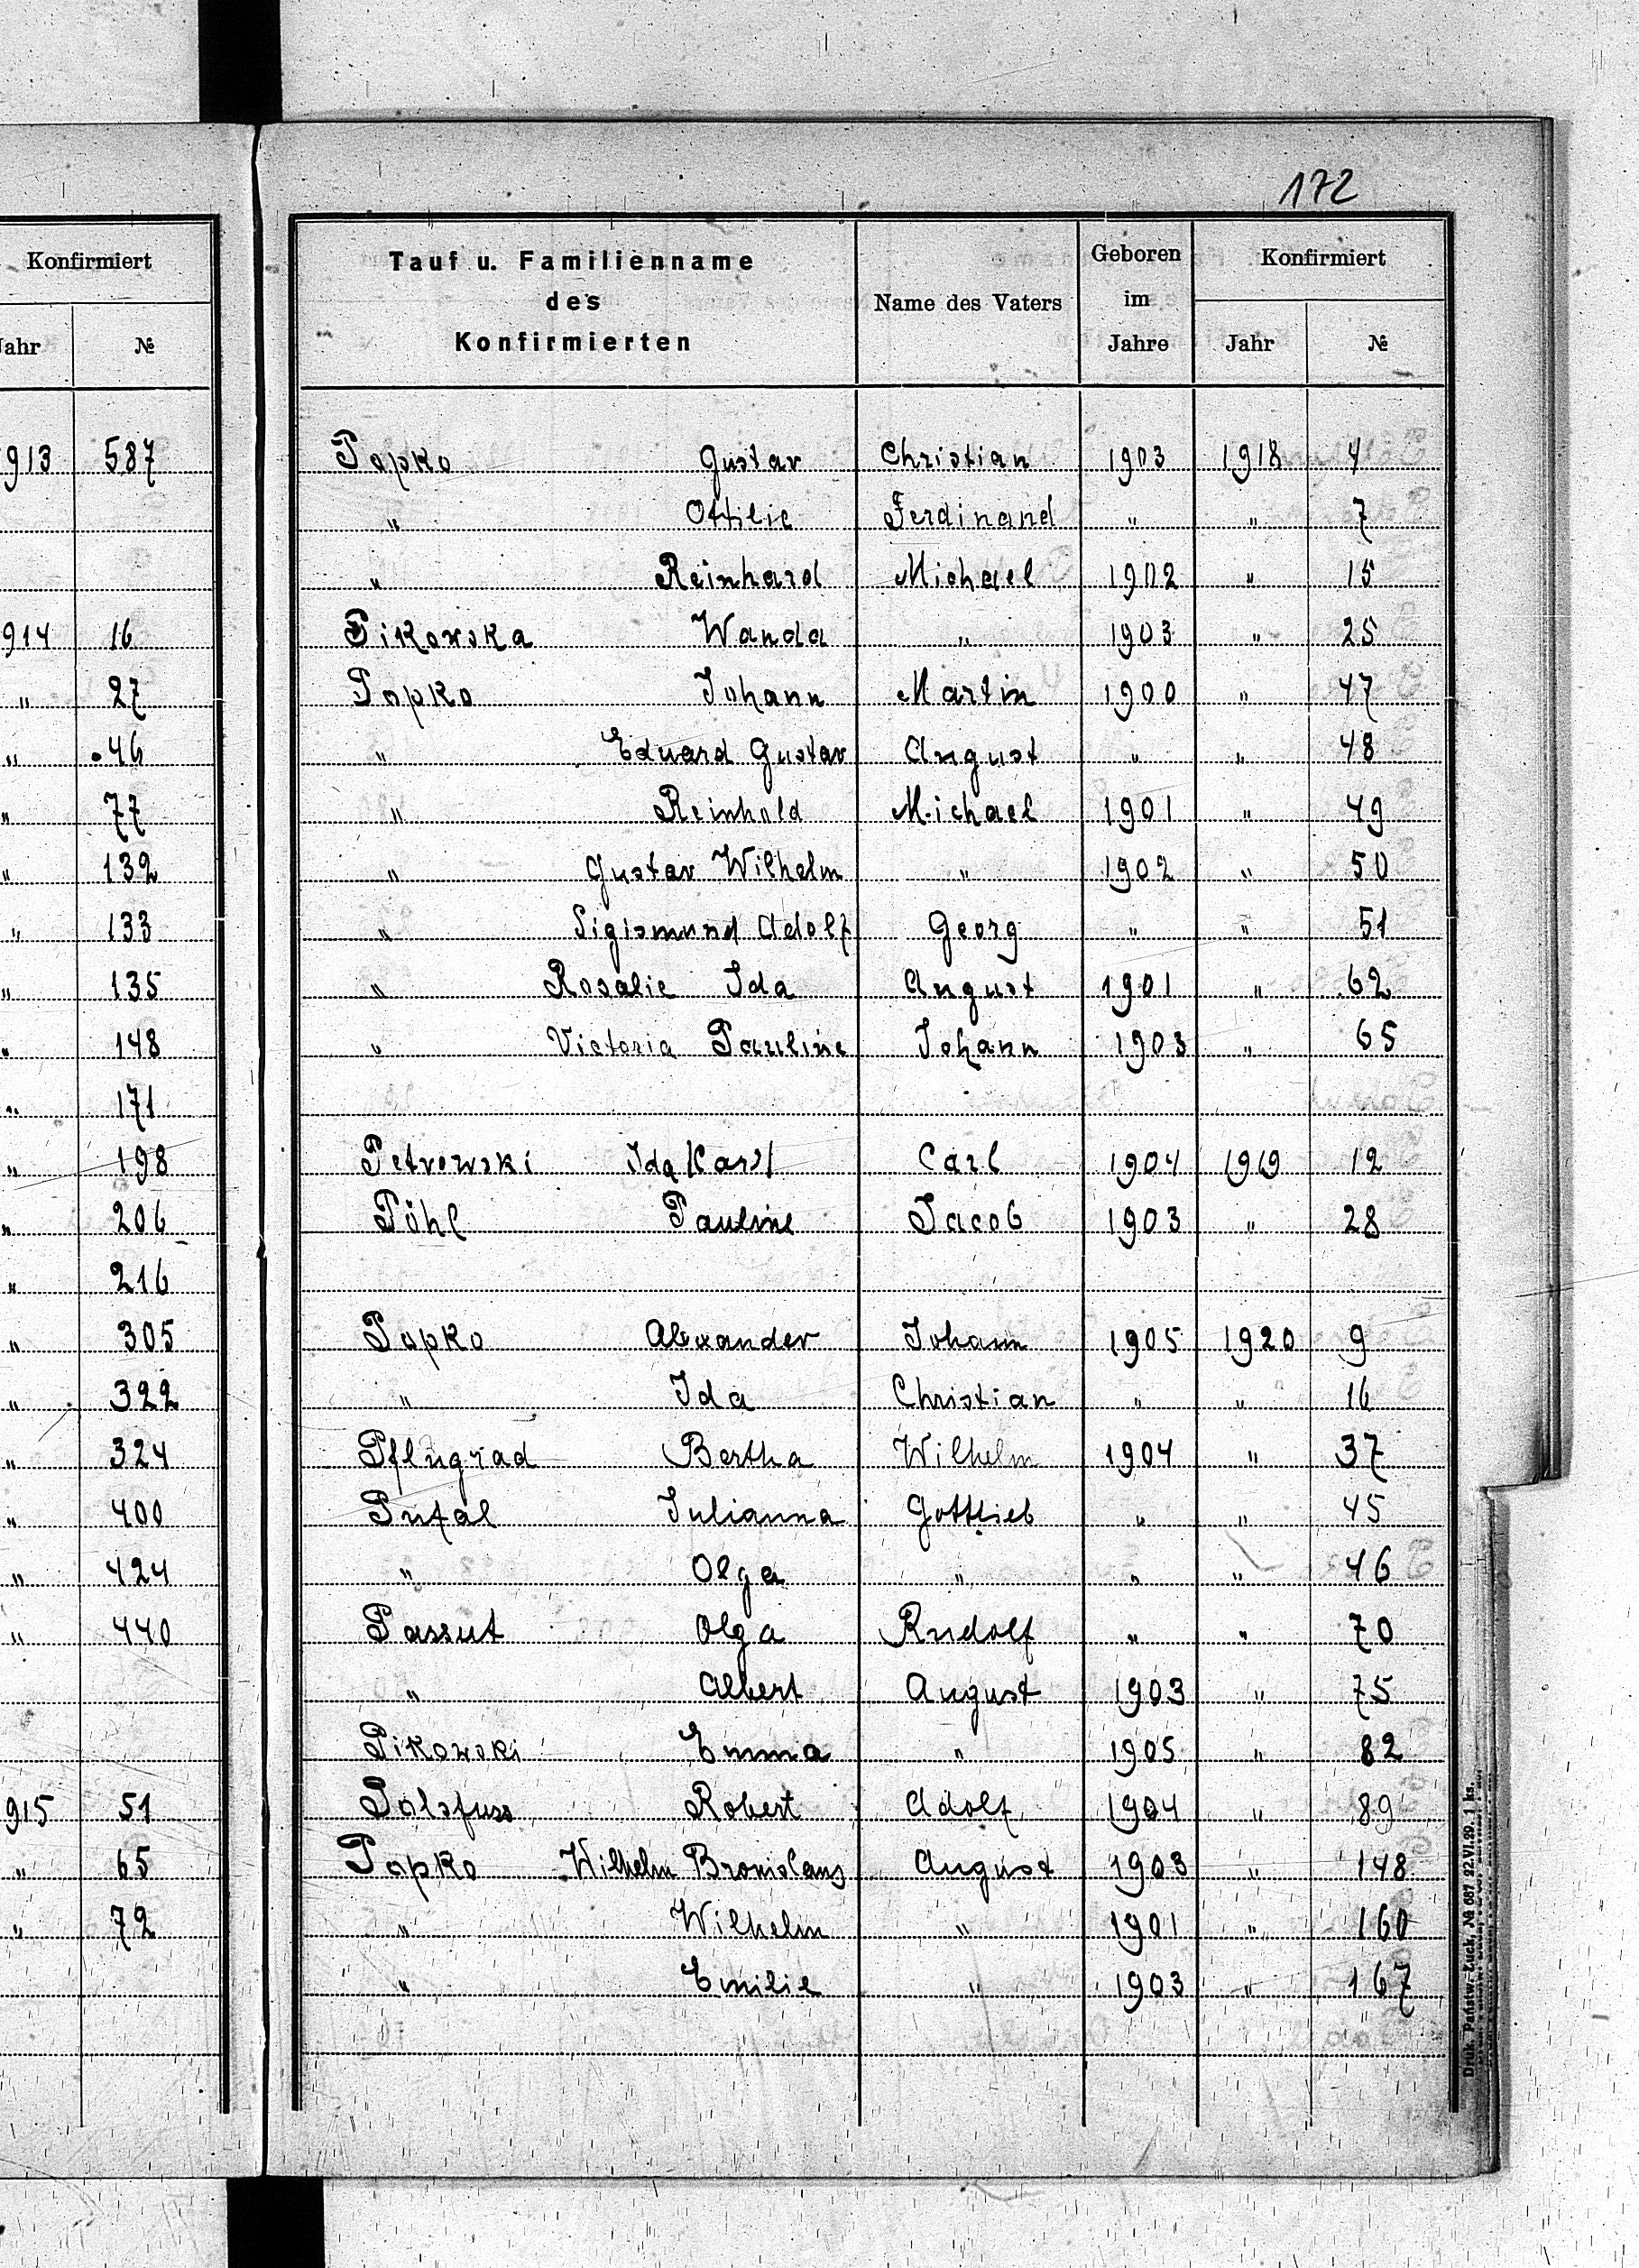 172
Konfirmiert
Jahr №
913 587
914 16
" 27
" 46
" 77
" 132
" 133
" 135
" 148
" 171
" 198
" 206
" 216
" 305
" 322
" 324
" 400
" 424
" 440
915 51
" 65
" 72
Tauf u. Familienname des Konfirmierten Name des Vaters Geboren im Jahre Konfirmiert
Jahr №
Popko Gustav Christian 1903 1918 4
" Ottilie Ferdinand " " 7
" Reinhard Michael 1902 " 15
Pikowska Wanda " 1903 " 25
Popko Johann Martin 1900 " 47
" Eduard Gustav August " " 48
" Reinhold Michael 1901 " 49
" Gustav Wilhelm " 1902 " 50
" Sigismund Adolf Georg " " 51
" Rosalie Ida August 1901 " 62
" Victoria Pauline Johann 1903 " 65
Petrowski Ida /Carl/ Carl 1904 1919 12
Pöhl Pauline Jacob 1903 " 28
Popko Alexander Johann 1905 1920 9
" Ida Christian " " 16
Pflugrad Bertha Wilhelm 1904 " 37
Putal Julianna Gottlieb " " 45
" Olga " " " 46
Passut Olga Rudolf " " 70
" Albert August 1903 " 75
Pikowski Emma " 1905 " 82
Polsfuss Robert Adolf 1904 " 89
Popko Wilhelm Bronislaus August 1903 " 148
" Wilhelm " 1901 " 160
" Emilie " 1903 " 167
Druk. Państw. Łuck, № 687 22.VI.29. 1 ks.